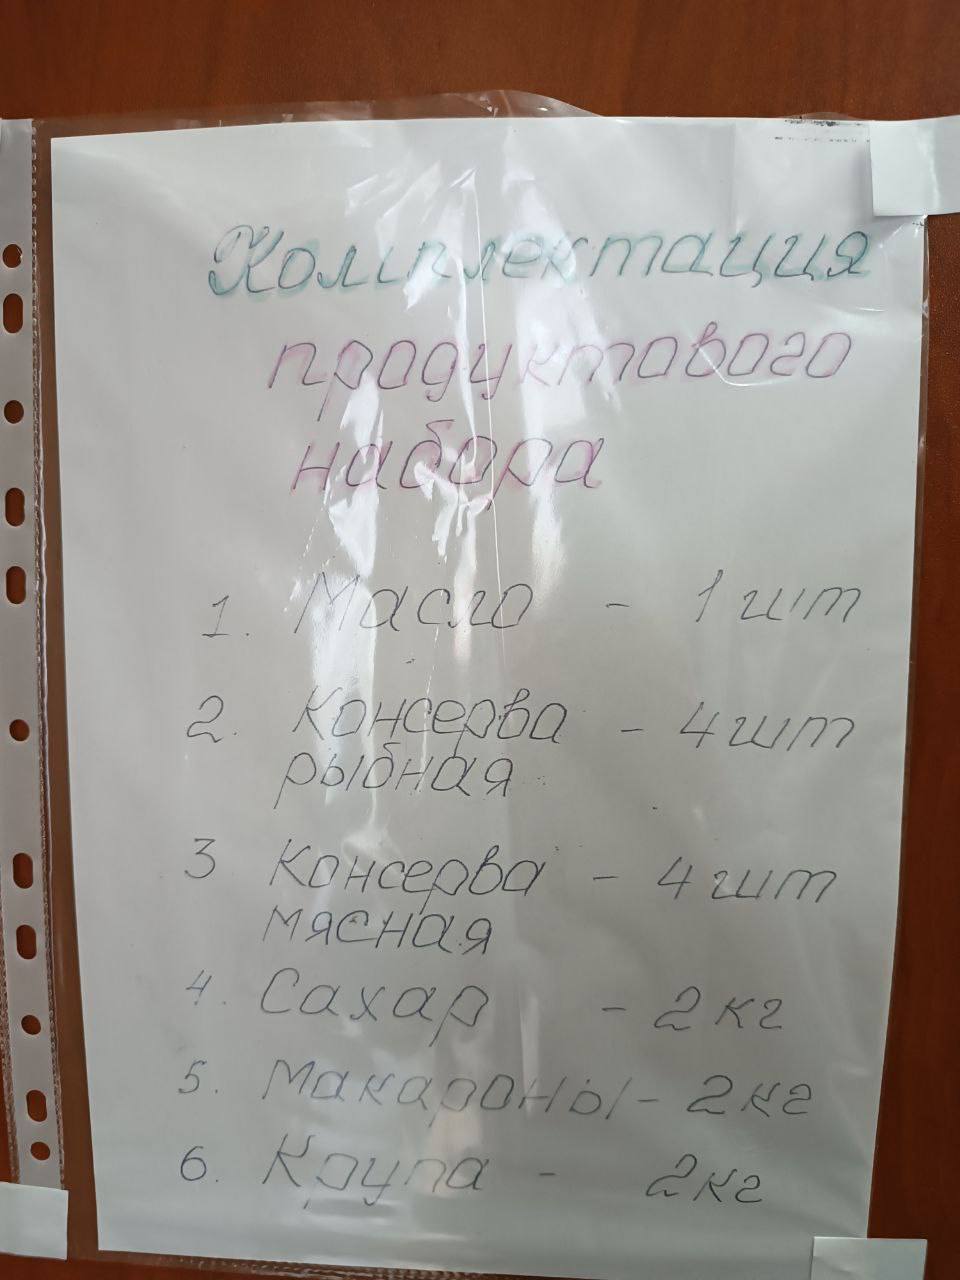 Комплектация
продуктового
набора
1. Масло - 1 шт
2. Консерва - 4 шт
рыбная
3 Консерва - 4 шт
мясная
4. Сахар - 2 кг
5. Макароны - 2 кг
6. Крупа - 2 кг